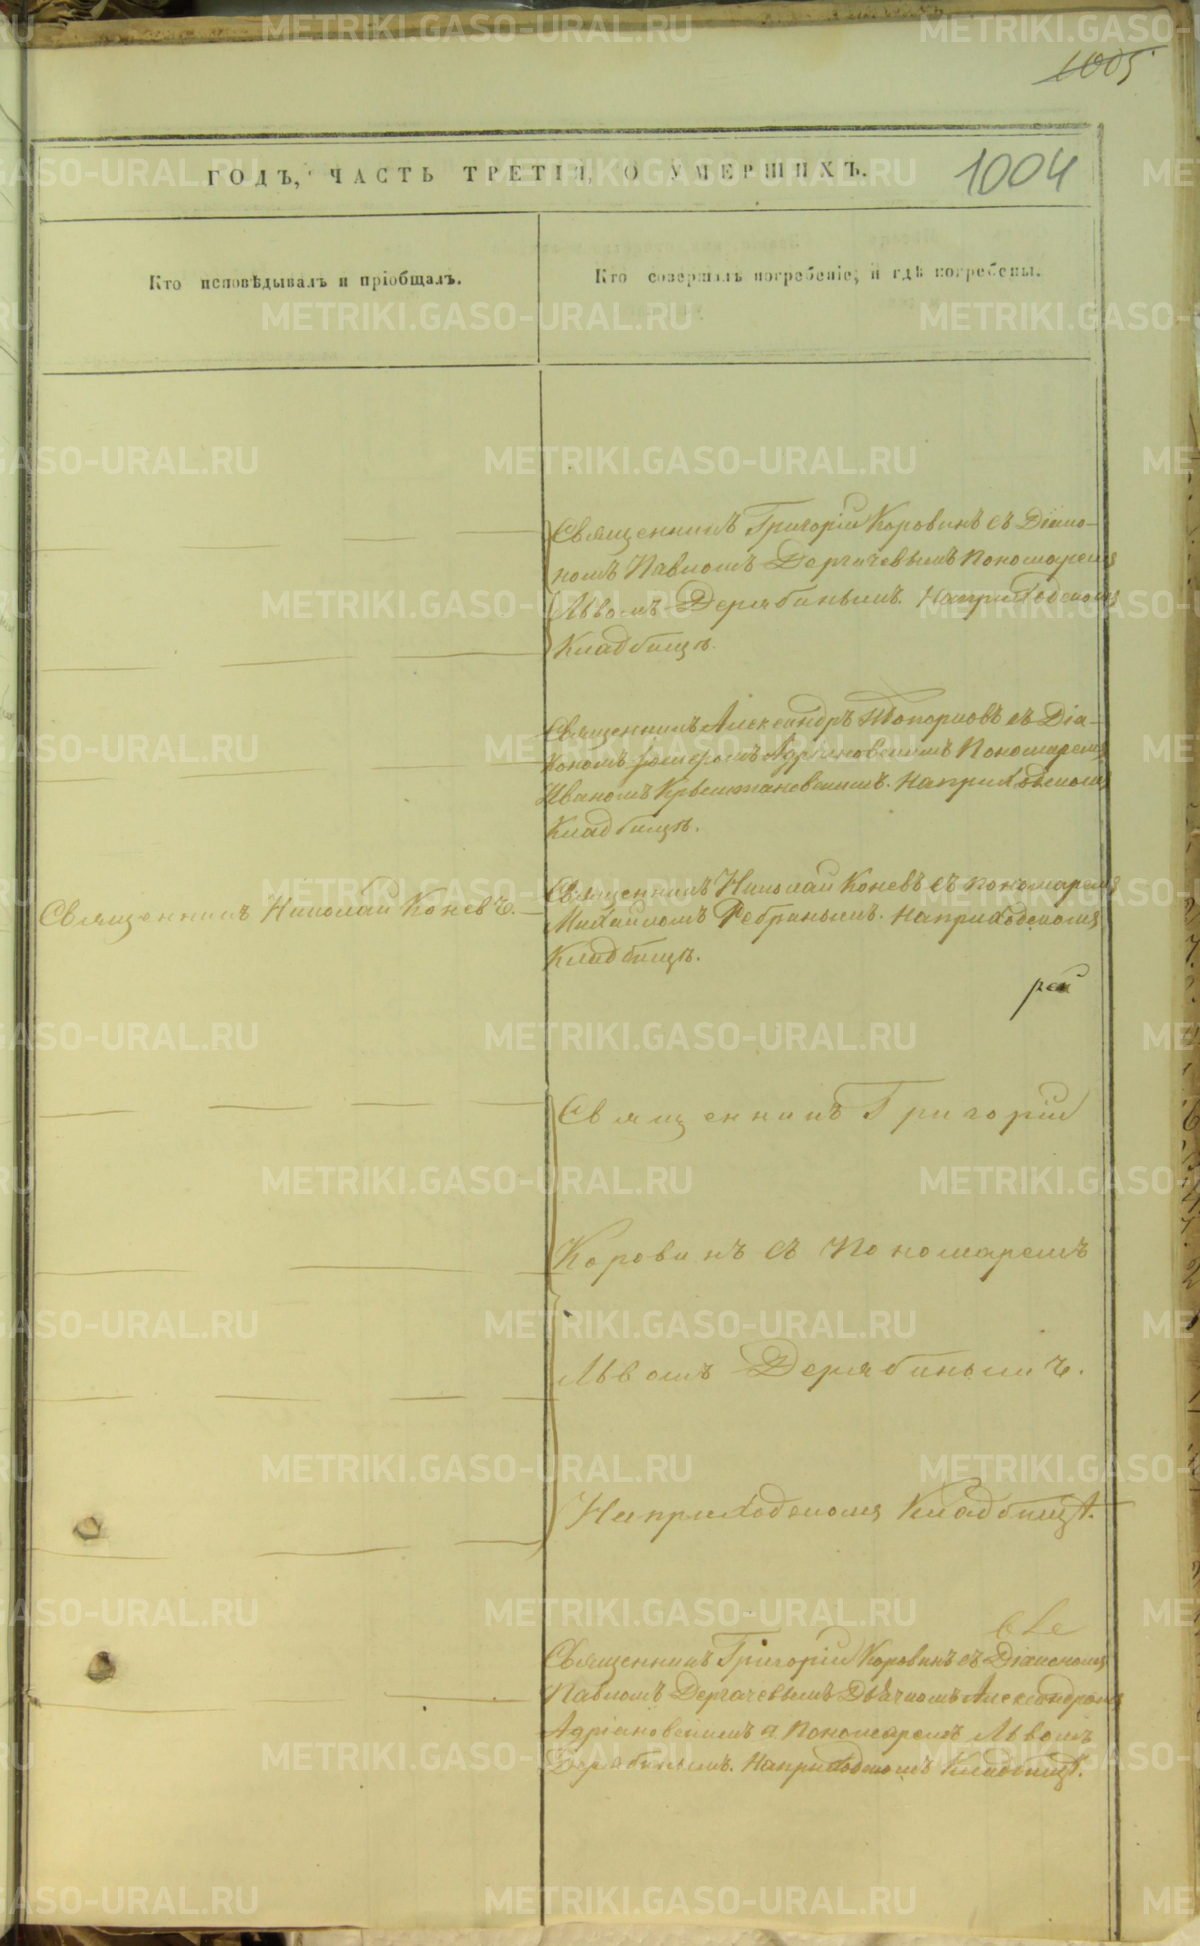 1005
ГОДЪ, ЧАСТЬ ТРЕТІЯ, О УМЕРШИХЪ.
1004
Кто исповѣдывалъ и пріобщалъ.
Кто совершалъ погребеніе, и гдѣ погребены.
Священникъ Григорій Коровинъ съ Діако-
номъ Павломъ Дергачевымъ Пономаремъ
Львомъ Дерябинымъ. На приходскомъ
Кладбищѣ.
Священникъ Александръ Топорковъ съ Діа-
кономъ Адріановскимъ Пономаремъ
Иваномъ Крыжановскимъ. На приходскомъ
Кладбищѣ.
Священникъ Николай Коневъ.
Священникъ Николай Коневъ съ пономаремъ
Михаиломъ Ребринымъ. На приходскомъ
Кладбищѣ.
рей
Священникъ Григорій
Коровинъ съ Пономаремъ
Львомъ Дерябинымъ.
На приходскомъ Кладбищѣ.
Священникъ Григорій Коровинъ съ Діакономъ
Павломъ Дергачевымъ Дьячкомъ Александромъ
Адріановскимъ и Пономаремъ Львомъ
Дерябинымъ. На приходскомъ Кладбищѣ.
METRIKI.GASO-URAL.RU